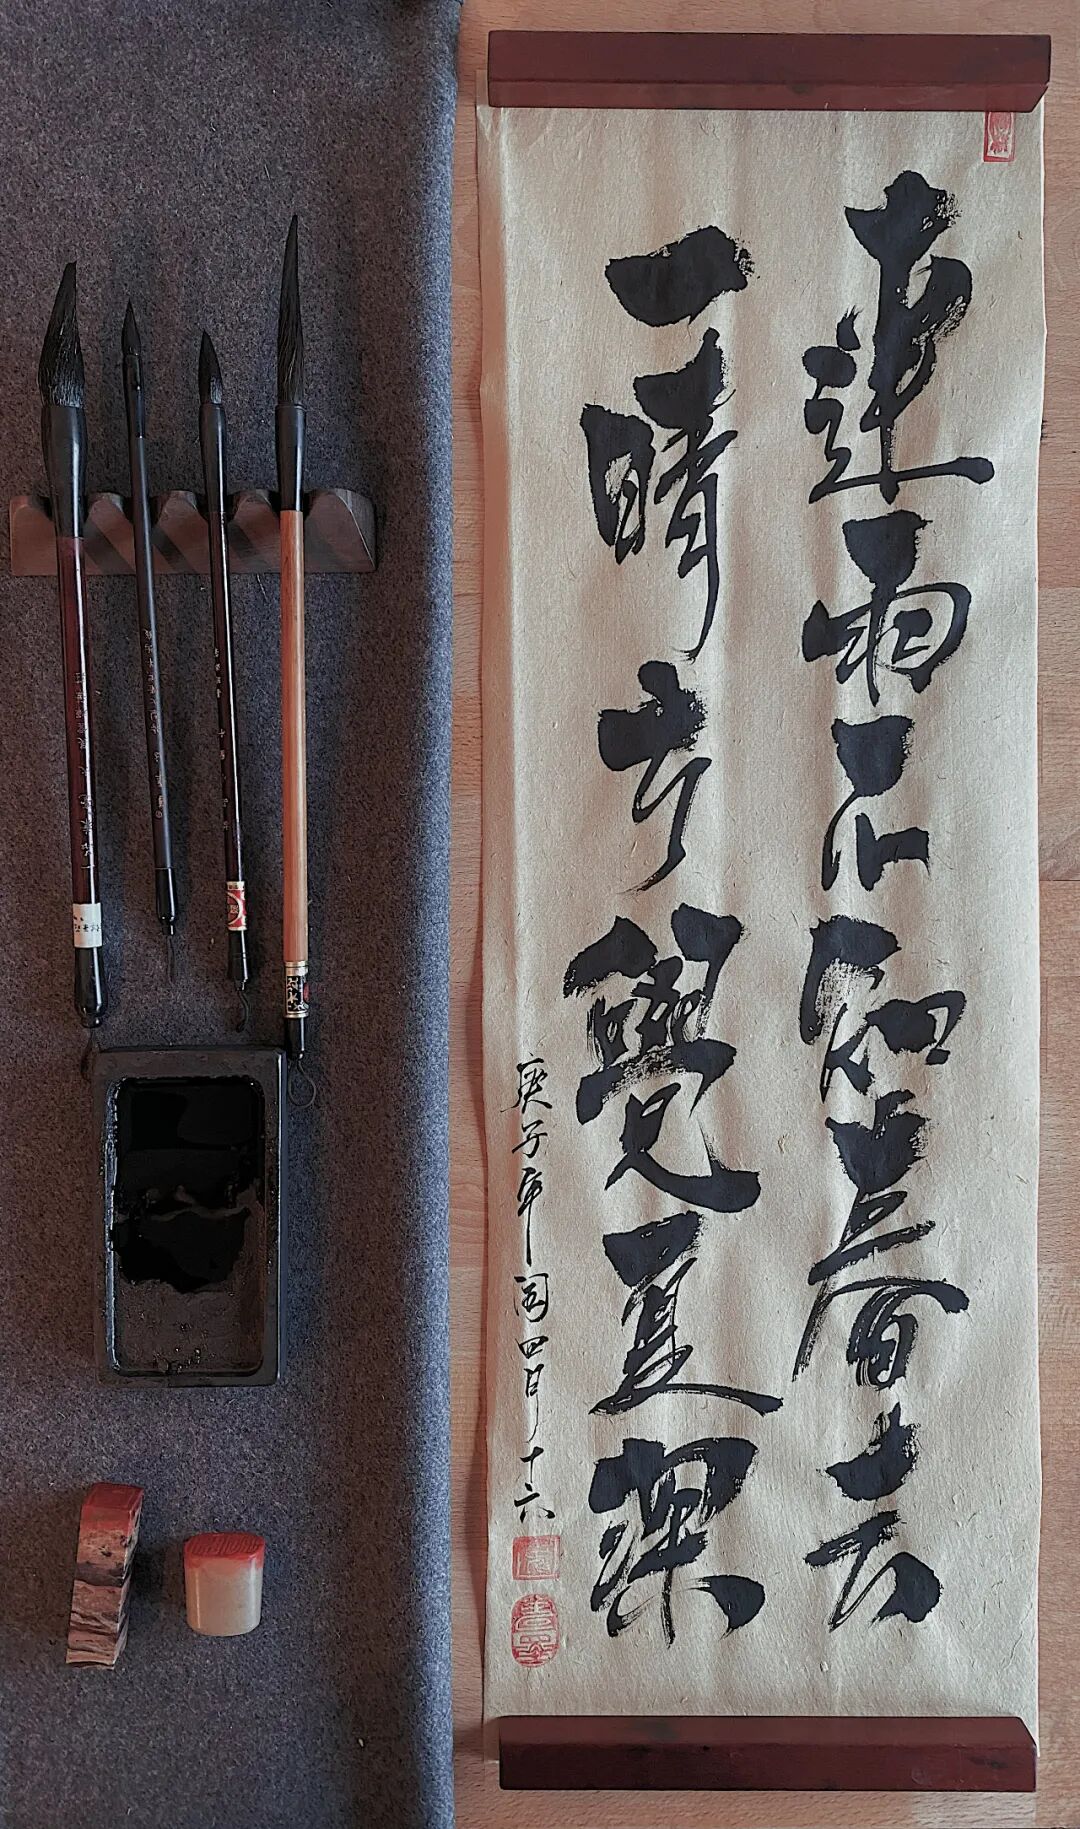 連雨不知春去
一晴方覺夏深
庚子年閏四月十六